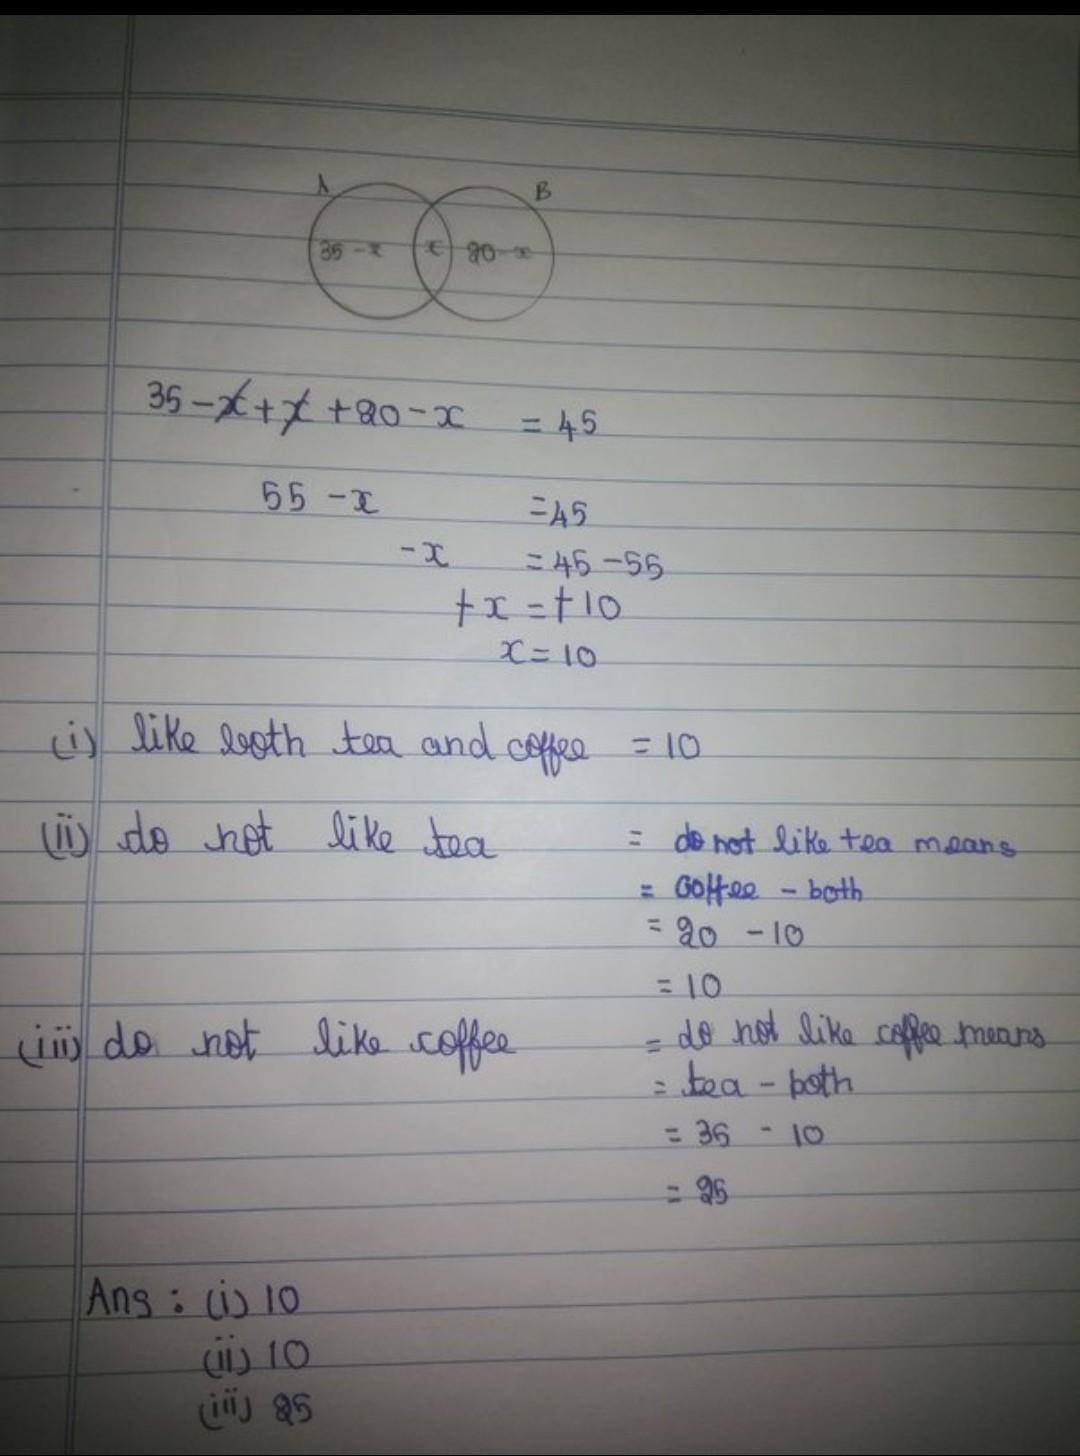 A B
35 - x x 20 - x
35 - x + x + 20 - x = 45
55 - x = 45
- x = 45 - 55
+ x = + 10
x = 10
(i) like both tea and coffee = 10
(ii) do not like tea = do not like tea means
= coffee - both
= 20 - 10
= 10
(iii) do not like coffee = do not like coffee means
= tea - both
= 35 - 10
= 25
Ans : (i) 10
(ii) 10
(iii) 25